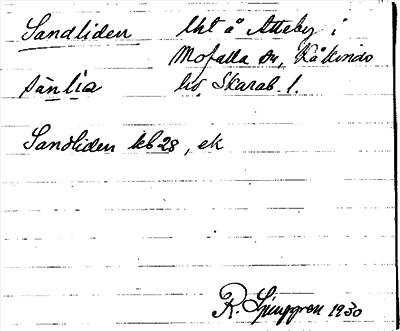 Sandliden lht å Atteby i
Mofalla sn, Kåkinds
sànlia hd Skarab. l.
Sandliden kb 28, ek
R. Ljunggren 1930